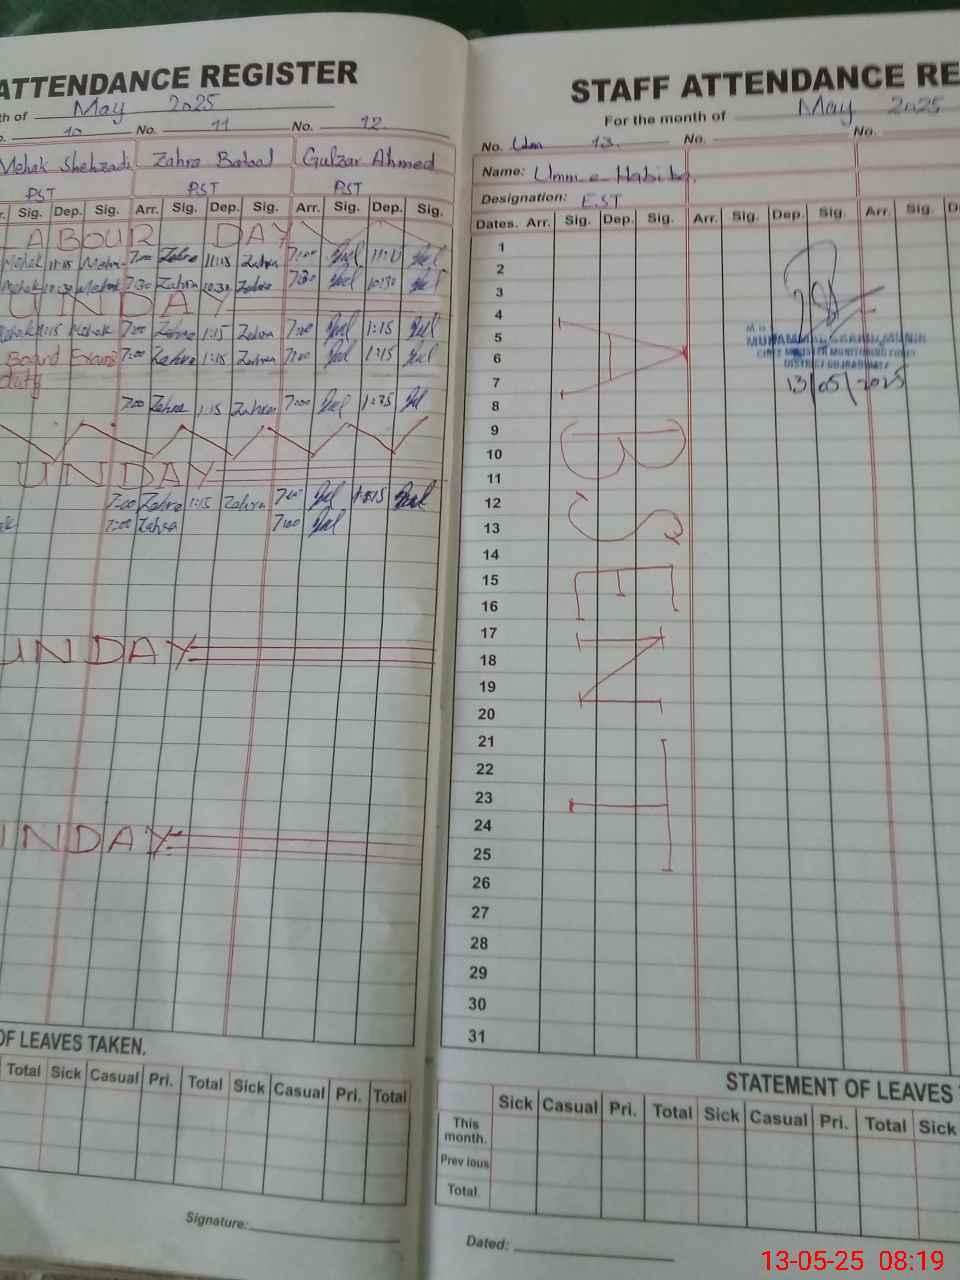 ATTENDANCE REGISTER
th of May 2025
10 No. 11 No. 12
Mehak Shehzadi Zahra Batool Gulzar Ahmed
PST PST PST
Sig. Dep. Sig. Arr. Sig. Dep. Sig. Arr. Sig. Dep. Sig.
LABOUR DAY
Mehak 11:15 Mehak 7:00 Zahra 11:15 Zahra 7:00
Mehak 10:30 Mehak 7:30 Zahra 10:30 Zahra 7:30 10:30
UNDAY
Mehak 1:15 Mehak 7:00 Zahra 1:15 Zahra 7:00 1:15
Board Exam 7:00 Zahra 1:15 Zahra 7:00 1:15
duty
7:00 Zahra 1:15 Zahra 7:00
UNDAY
7:00 Zahra 1:15 Zahra 7:00
7:00 Zahra 7:00
UNDAY
UNDAY
OF LEAVES TAKEN.
Total Sick Casual Pri. Total Sick Casual Pri. Total
Signature:
STAFF ATTENDANCE RE
For the month of May 2025
No. 13 No. No.
Name: Umm e Habiba
Designation: EST
Dates. Arr. Sig. Dep. Sig. Arr. Sig. Dep. Sig. Arr. Sig. D
1
2
3
4
5
6
7
8
9
10
11
12
13
14
15
16
17
18
19
20
21
22
23
24
25
26
27
28
29
30
31
ABSENT
CHIEF MINISTER MONITORING FORCE
DISTRICT GUJRANWALA
13/05/2025
STATEMENT OF LEAVES
Sick Casual Pri. Total Sick Casual Pri. Total Sick
This month.
Previous
Total.
Dated:
13-05-25 08:19